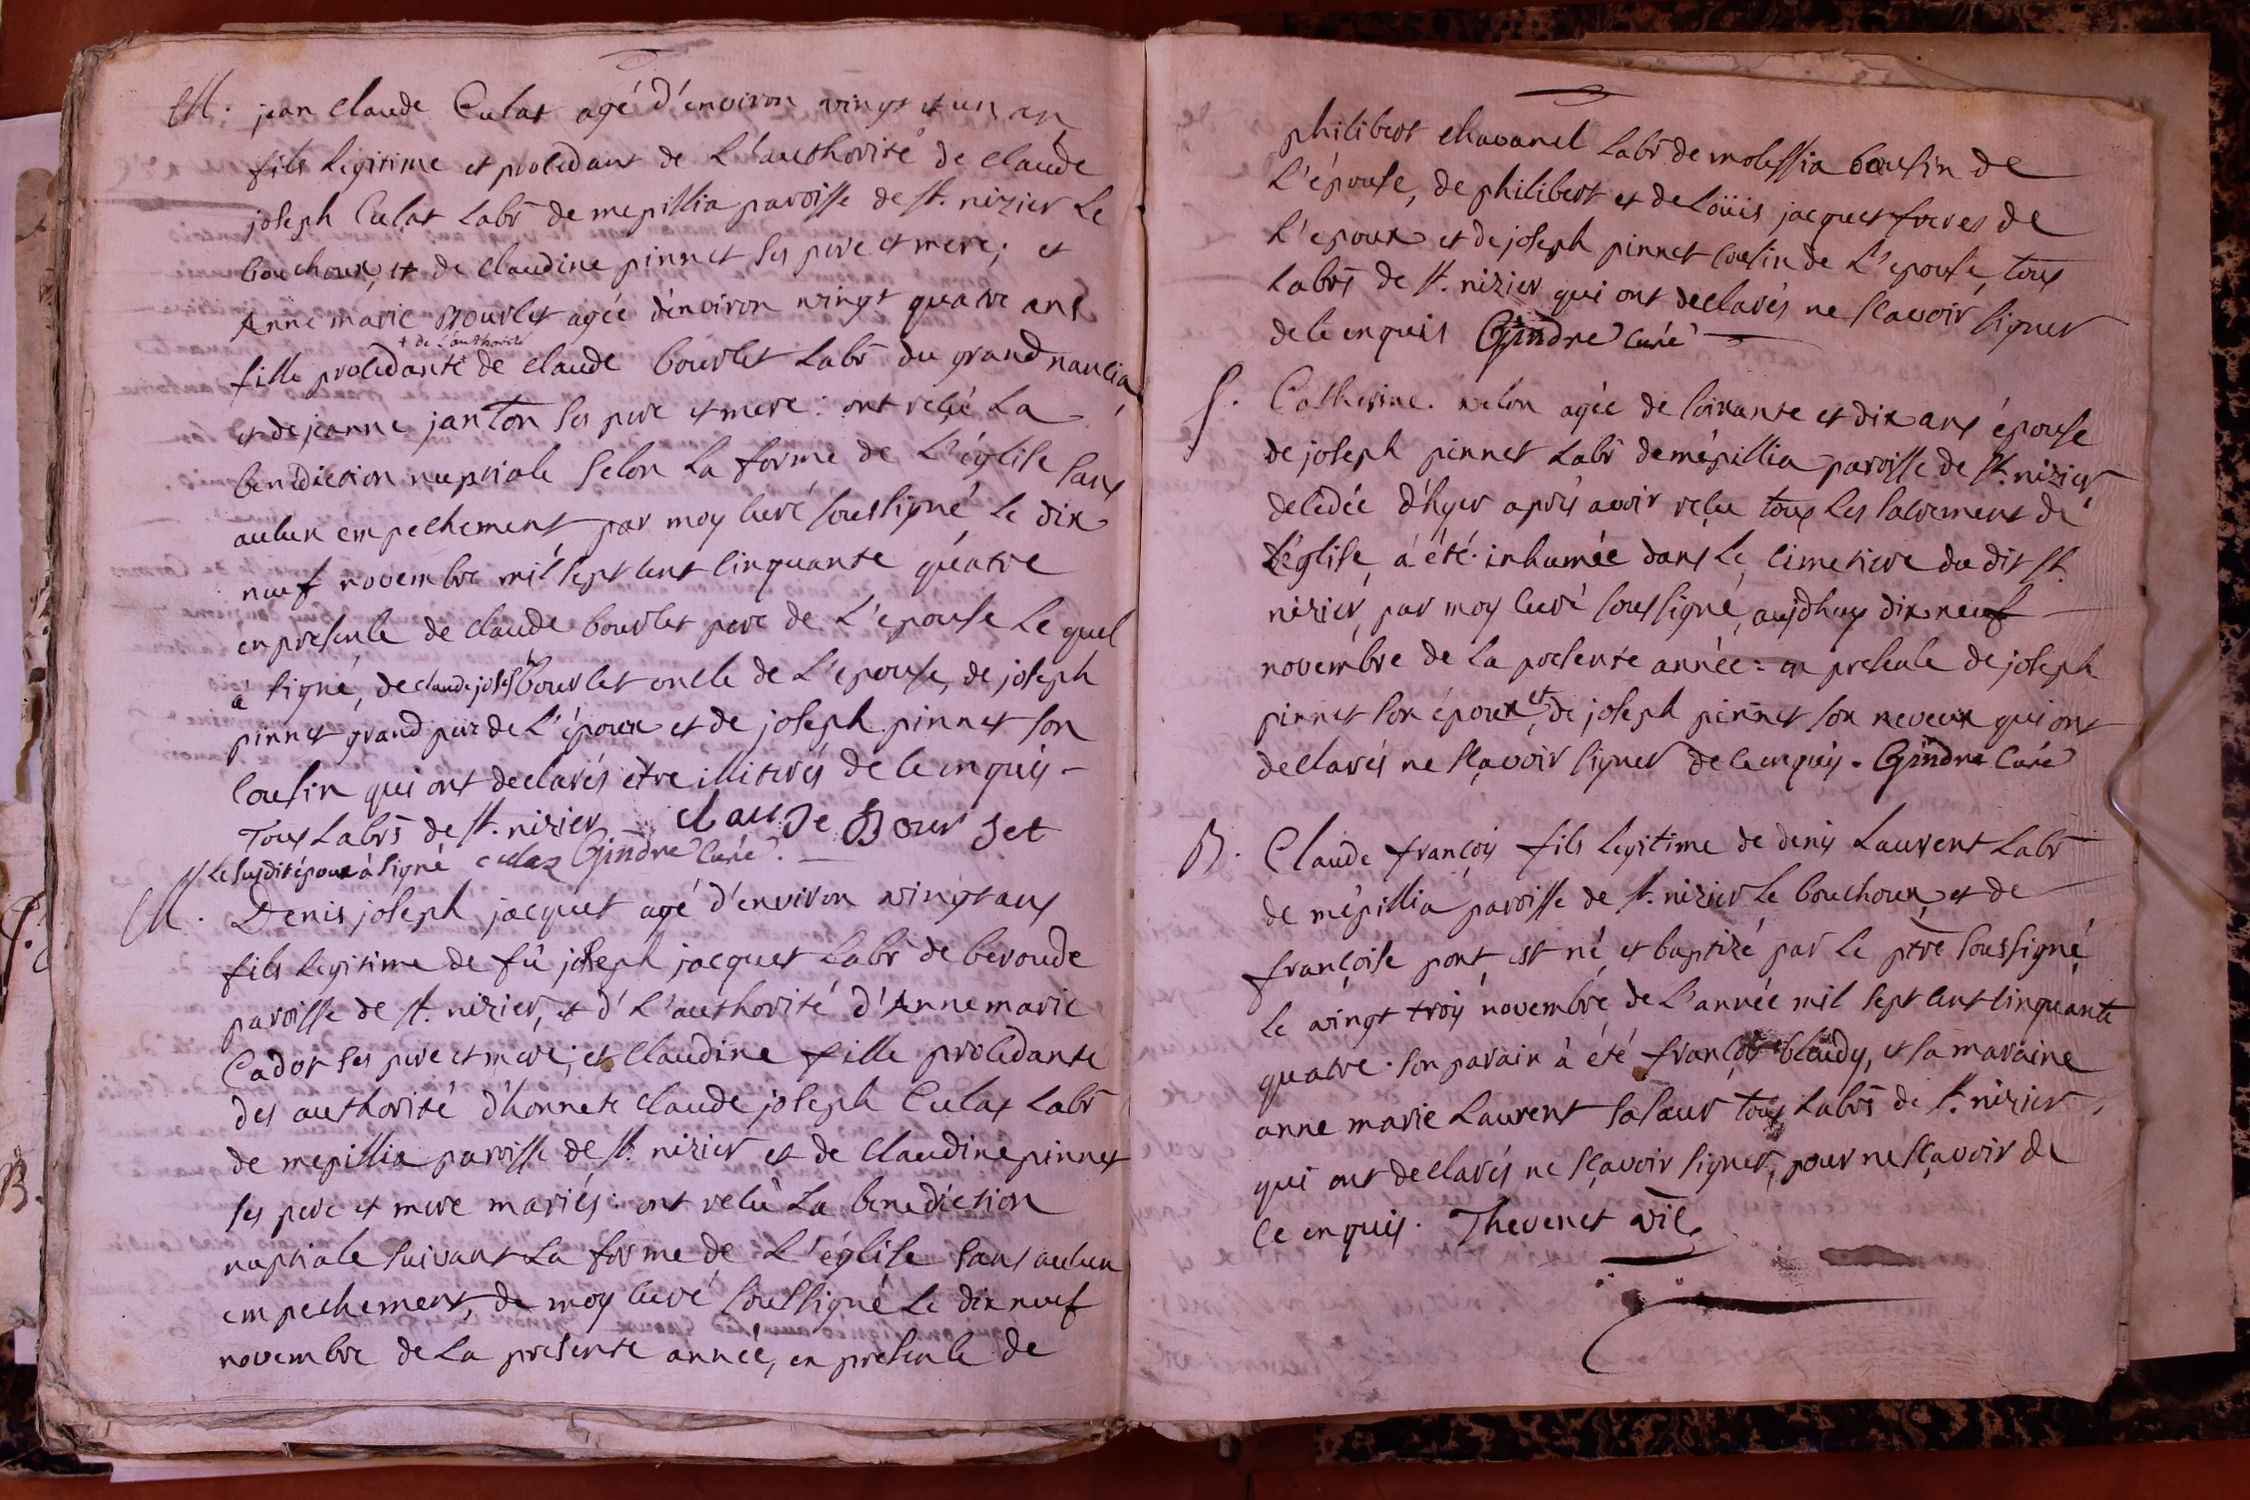 M. jean claude Culat agé d'environ vingt et un an
fils legitime et procedant de L'authorité de claude
joseph Culat Labr de mepillia paroisse de st. nizier Le
bouchoux, et de claudine pinnet ses pere et mere; et
Anne marie Bourlet agée d'environ vingt quatre ans
+ de L'authorité
fille procedante de claude bourlet Labr du grand nancia
et de jeanne janton ses pere et mere: ont reçu La
benediction nuptiale selon La forme de L'église sans
aucun empechement par moy curé soussigné Le dix
neuf novembre mil sept cent cinquante quatre
en presence de claude bourlet pere de L'epouse Lequel
a signé, de claude joseph bourlet oncle de L'epouse, de joseph
pinnet grand pere de L'époux et de joseph pinnet son
cousin qui ont declarés etre illiterés de ce enquis -
Tous Labrs de st. nizier claude Bourlet
Le susdit époux à signé culaz Gindre Curé. -
M. Denis joseph jacquet agé d'environ vingt ans
fils legitime de fû joseph jacquet Labr de beroude
paroisse de st. nizier, et d' L'authorité d'Anne marie
Cadot ses pere et mere; et claudine fille procedante
des authorité d'honnete claude joseph Culat Labr
de mepillia paroisse de st. nizier et de claudine pinnet
ses pere et mere mariés: ont reçu La benediction
nuptiale suivant La forme de L'église sans aucun
empechement, de moy curé soussigné Le dix neuf
novembre de La presente année, en presence de
philibert chavanel Labr de molissia cousin de
L'épouse, de philibert et de Loüis jacquet freres de
L'epoux et de joseph pinnet cousin de L'epouse, tous
Labrs de st. nizier qui ont declarés ne scavoir signer
de ce enquis Gindre curé
S. Catherine velon agée de soixante et dix ans épouse
de joseph pinnet Labr de mépillia paroisse de st. nizier
decedée d'hyer après avoir reçu tous Les sacrement de
L'église, à été inhumée dans Le cimetiere du dit st.
nizier, par moy curé soussigné, aujdhuy dix neuf
novembre de La presente année: en presence de joseph
pinnet son époux et de joseph pinnet son neveux qui ont
declarés ne sçavoir signer de ce enquis. Gindre Curé
B. Claude françois fils Legitime de denis Laurent Labr
de mépillia paroisse de st. nizier Le bouchoux, et de
françoise pont est né et baptizé par Le ptre soussigné
Le vingt trois novembre de L'année mil sept cent cinquante
quatre. son parain à été françois blaudy, et sa maraine
anne marie Laurent sa sœur tous Labrs de st. nizier,
qui ont declarés ne sçavoir signer, pour ne sçavoir de
ce enquis. Thevenet vic